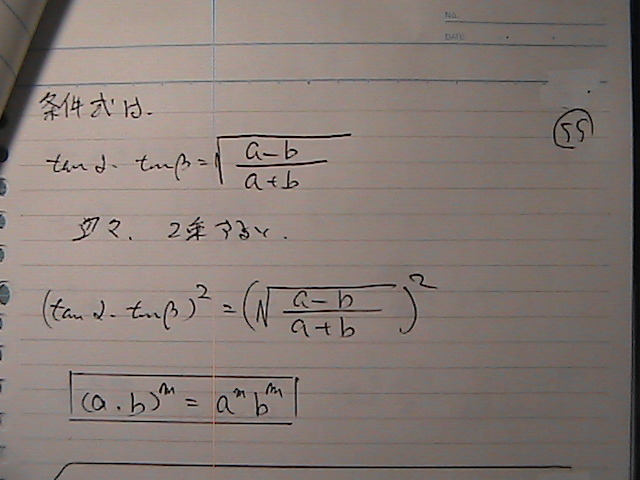 NO.
DATE
条件式は、
(55)
tanα・tanβ=√((a-b)/(a+b))
2乗すると、
(tanα・tanβ)²=(√((a-b)/(a+b)))²
(a・b)ᵐ=aᵐbᵐ